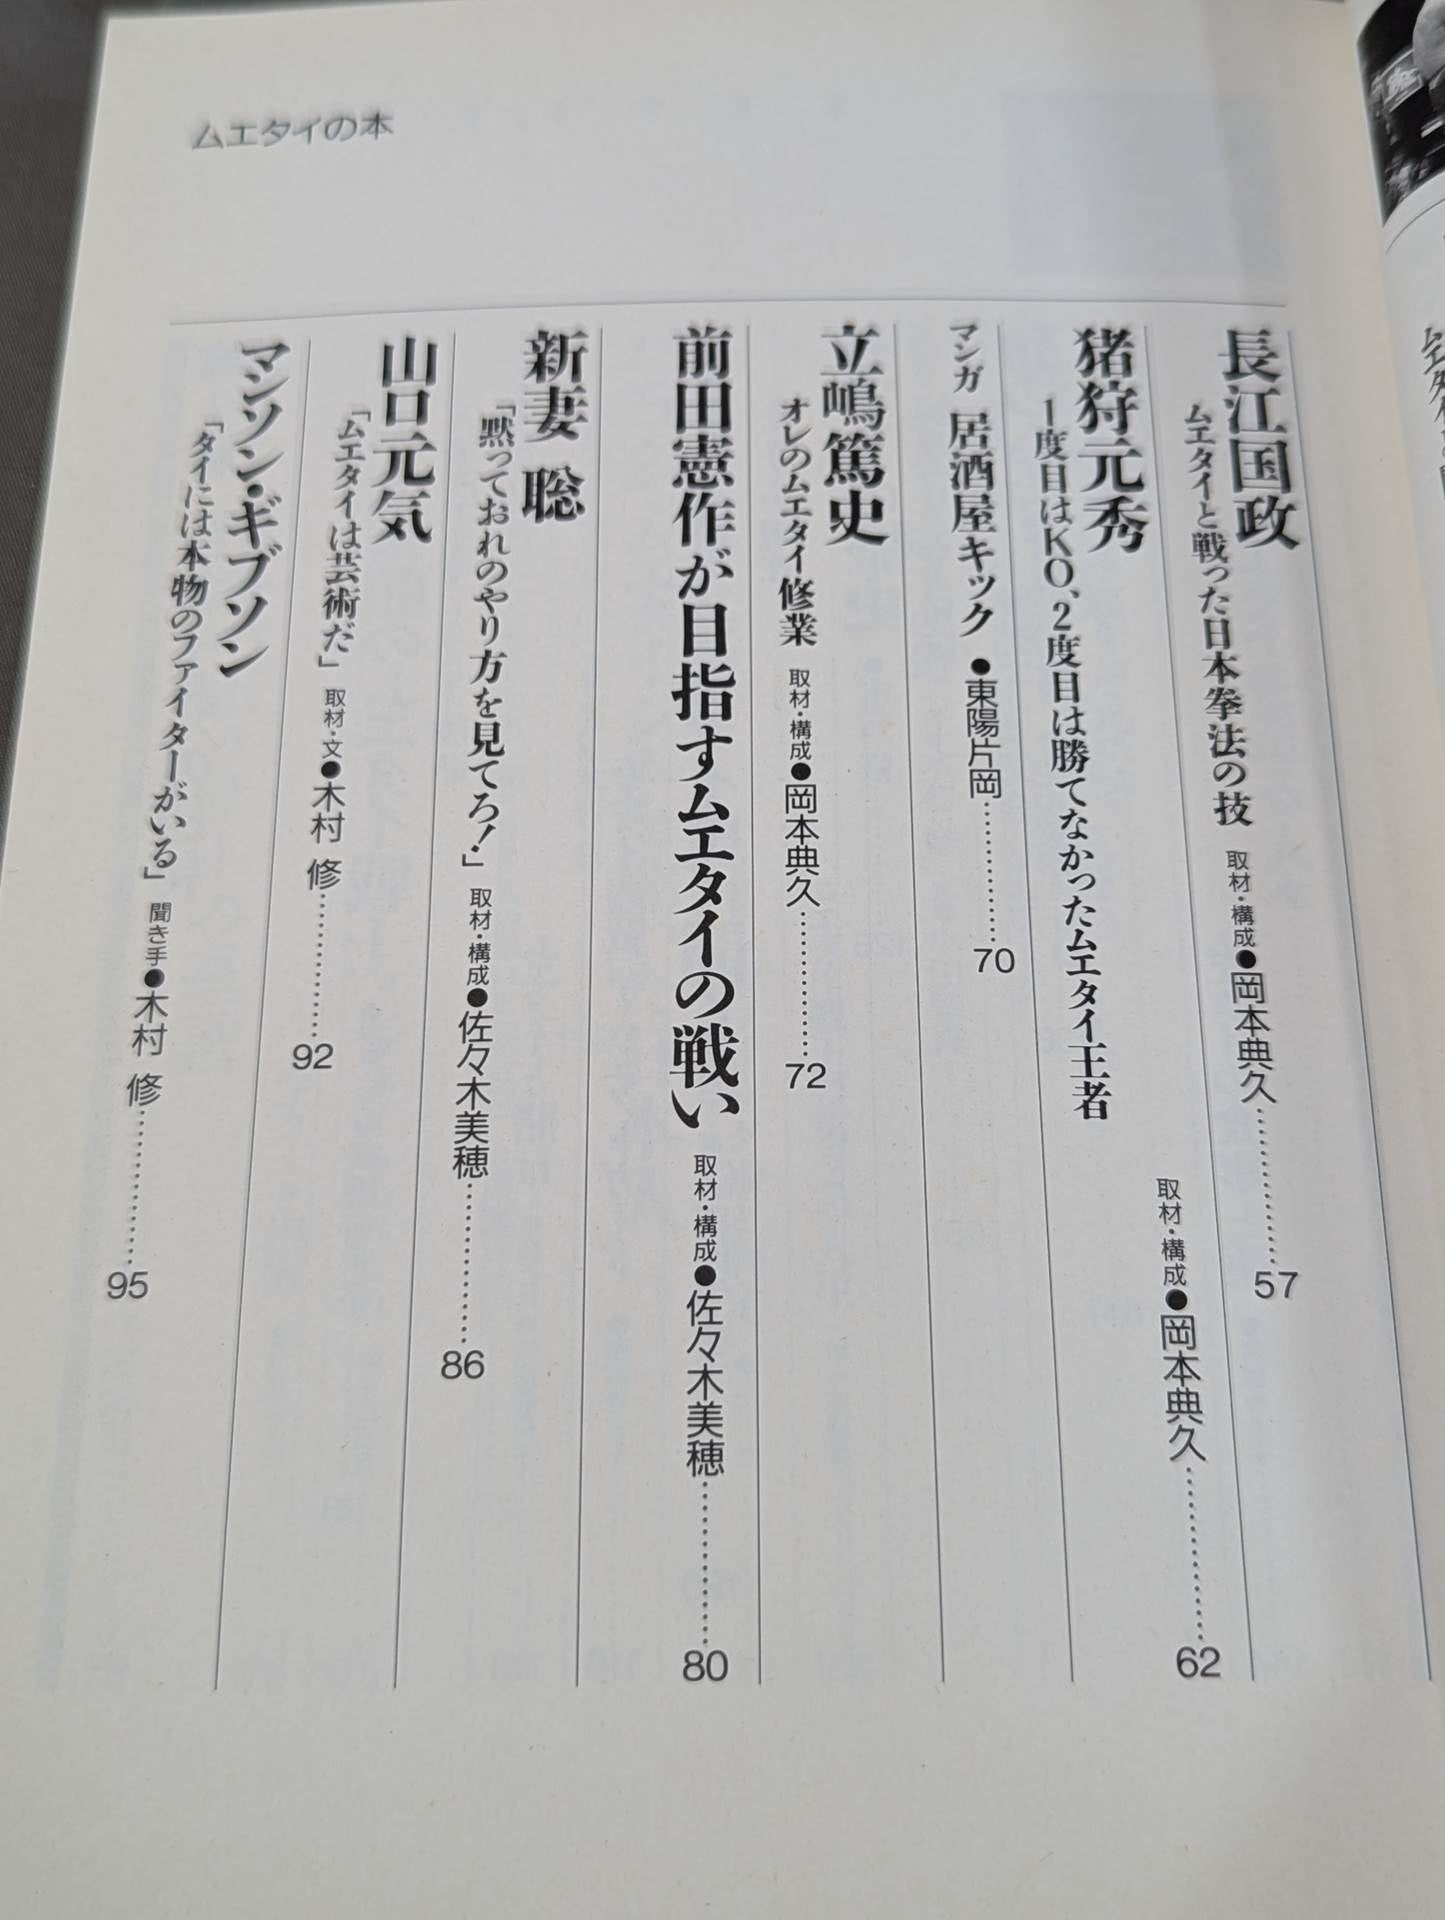 ムエタイの本
長江国政
ムエタイと戦った日本拳法の技 取材・構成●岡本典久…………57
猪狩元秀
1度目はKO、2度目は勝てなかったムエタイ王者
取材・構成●岡本典久…………62
マンガ 居酒屋キック ●東陽片岡…………70
立嶋篤史
オレのムエタイ修業 取材・構成●岡本典久…………72
前田憲作が目指すムエタイの戦い 取材・構成●佐々木美穂…………80
新妻 聡
「黙っておれのやり方を見てろ!」 取材・構成●佐々木美穂…………86
山口元気
「ムエタイは芸術だ」 取材・文●木村 修…………92
マンソン・ギブソン
「タイには本物のファイターがいる」 聞き手●木村 修…………95